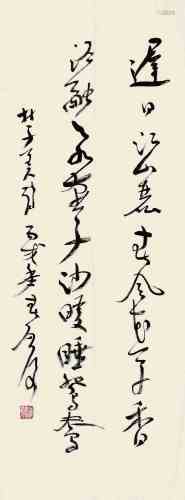 遲日江山麗春風花草香
泥融飛燕子沙暖睡鴛鴦
杜子美詩丙戌年春